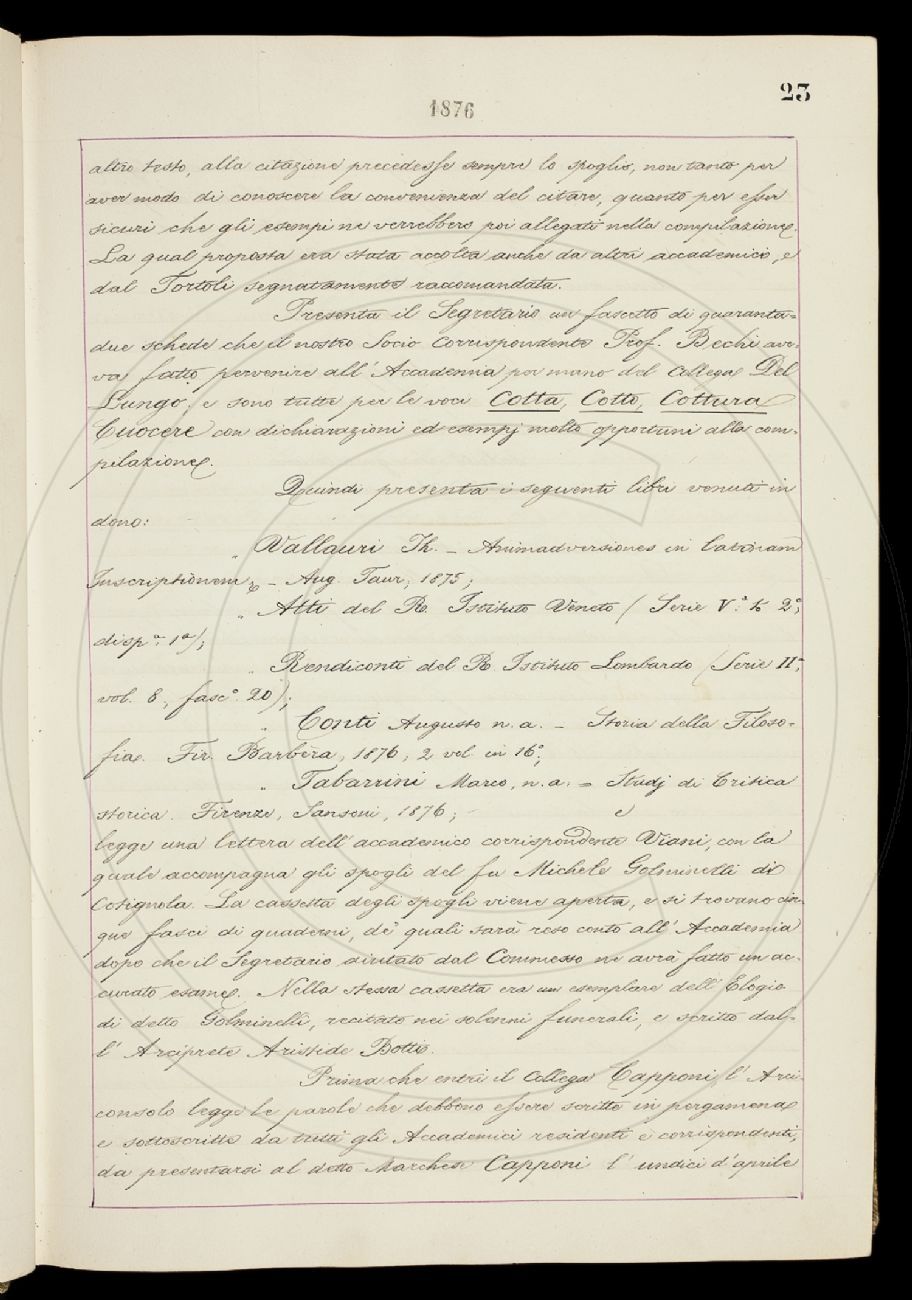 1876
23
altro testo, alla citazione precedesse sempre lo spoglio, non tanto per
aver modo di conoscere la convenienza del citare, quanto per esser
sicuri che gli esempi ne verrebbero poi allegati nella compilazione.
La qual proposta era stata accolta anche da altri accademici, e
dal Tortoli segnatamente raccomandata.
Presenta il Segretario un fascetto di quaranta=
due schede che il nostro Socio corrispondente Prof. Bechi ave-
va fatto pervenire all'Accademia per mano del Collega Del
Lungo, e sono tutte per le voci Cotta, Cotto, Cottura
Cuocere con dichiarazioni ed esempj molto opportuni alla com-
pilazione.
Quindi presenta i seguenti libri venuti in
dono:
" Vallauri Th. – Animadversiones in latinam
Inscriptionem – Aug. Taur, 1875;
" Atti del R. Istituto Veneto (Serie V.ª t. 2º,
disp.ª 1ª);
" Rendiconti del R. Istituto Lombardo (Serie IIª,
vol. 8, fasc.º 20);
" Conti Augusto n. a. – Storia della Filoso-
fia. Fir. Barbèra, 1876, 2 vol. in 16º;
" Tabarrini Marco, n. a. = Studj di Critica
storica. Firenze, Sansoni, 1876; e
legge una lettera dell'accademico corrispondente Viani, con la
quale accompagna gli spogli del fu Michele Golminelli di
Cotignola. La cassetta degli spogli viene aperta, e si trovano cin-
que fasci di quaderni, de' quali sarà reso conto all'Accademia
dopo che il Segretario aiutato dal Commesso ne avrà fatto un ac-
curato esame. Nella stessa cassetta era un esemplare dell'Elogio
di detto Golminelli, recitato nei solenni funerali, e scritto dal-
l'Arciprete Aristide Botti.
Prima che entri il Collega Capponi l'Arci-
consolo legge le parole che debbono essere scritte in pergamena
e sottoscritte da tutti gli Accademici residenti e corrispondenti,
da presentarsi al detto Marchese Capponi l'undici d'aprile